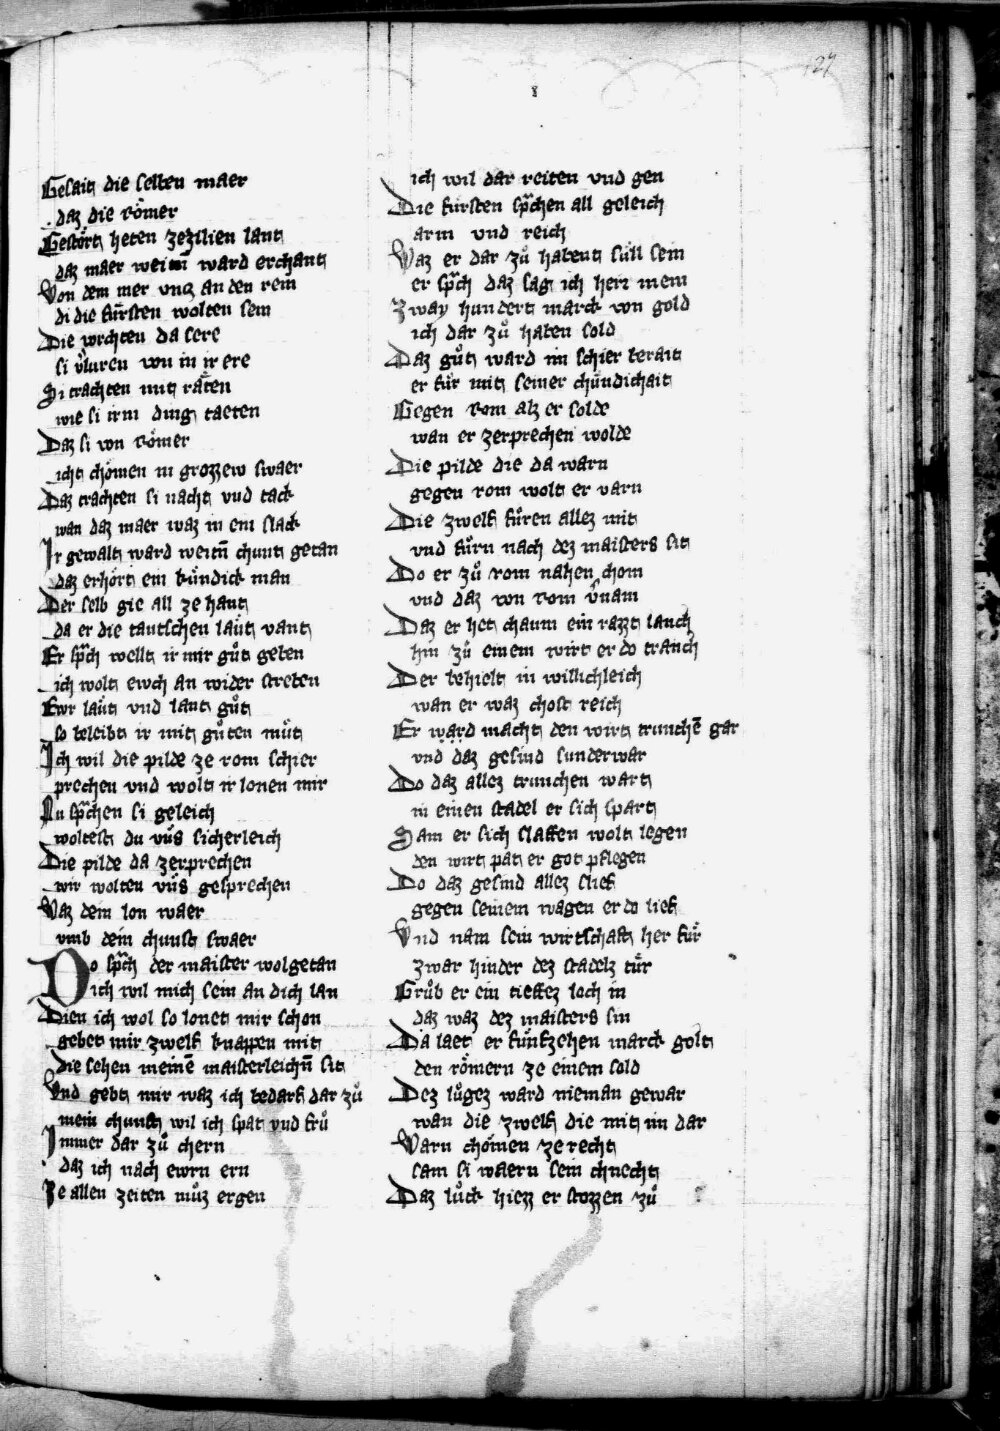 127
Gesait die selben maer
daz die Römer
Gestört heten zezilien lant
daz maer weitñ ward erchant
Von dem mer vncz an den rein
di die fürsten wolten sein
Die vorchten da sere
si vͦluren von in ir ere
Si trachten mit räten
wie si irm ding taeten
Daz si von Römer
icht chömen in grozzew swaer
Daz trachten si nacht vnd tack
wan daz maer waz in ein slack
Ir gewalt ward weitñ chunt getan
daz erhört ein kündick man
Der selb gie all ze hant
da er die tautschen läut vant
Er spͣch wellt ir mir gůt geben
ich wolt ewch an wider streben
Ewr läut vnd lant gůt
so beleibt ir mit gůten můt
Ich wil die pilde ze rom schier
prechen vnd wolt ir lonen mir
Nu spͣchen si geleich
woltest du vns sicherleich
Die pilde da zerprechen
wir wolten vns gesprechen
Waz dem lon waer
vmb dein chunst swaer
Do spͣch der maister wolgetan
ich wil mich sein an dich lan
Dien ich wol so lonet mir schon
gebet mir zwelf knappen mit
die sehen meinē maisterleichñ sit
Vnd gebt mir waz ich bedarf dar zů
mein chunst wil ich spat vnd frů
Immer dar zů chern
daz ich nach ewrn ern
Ze allen zeiten můz ergen
ich wil dar reiten vnd gen
Die fürsten spͣchen all geleich
arm vnd reich
Waz er dar zů habent süll sein
er spͣch daz sag ich herr mein
Zway hundert marck von gold
ich dar zů haben sold
Daz gůt ward im schier berait
er für mit seiner chündichait
Gegen Rom alz er solde
wan er zerprechen wolde
Die pilde die da warn
gegen rom wolt er varn
Die zwelf füren allez mit
vnd fürn nach dez maisters sit
Do er zů rom nahen chom
vnd daz von Rom v̊nam
Daz er het chaum ein razzt lanck
hin zů einem wirt er do tranck
Der behielt in willichleich
wan er waz chost reich
Er ward macht den wirt trunchē gar
vnd daz gesind sunderwar
Do daz allez trunchen wart
in einen stadel er sich spart
Sam er sich slaffen wolt legen
den wirt pat er got pflegen
Do daz gesind allez slief
gegen seinem wagen er do lief
Vnd nam sein wirtschaft her für
zwar hinder dez stadelz tür
Grůb er ein tieffez loch in
daz waz dez maisters sin
Da laet er fünfzehen marck golt
den römern ze einem sold
Dez lůgez ward nieman gewar
wan die zwelf die mit im dar
Warn chömen ze recht
sam si waern sein chnecht
Daz lůck hiezz er stozzen zů